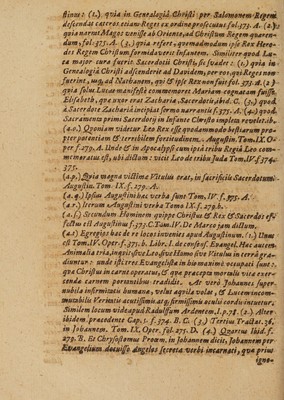 stinus: (1.) quia in Genealogia Christi per Salomonem Regem
descendat catteros etiam Reges ex ordine prosecutus fol. 373. A. (2.)
quia narrat Magos venisse ab Oriente, ad Christum Regem quæren-
dum, fol: 375. A. (3.) quia refert, quemadmodum ipse Rex Hero-
des Regem Christum formidaverit Infantem. Similiter quod Lu-
ca major cura fuerit Sacerdotii Christi, sic suadet: (1.) quia in
Genealogia Christi ascenderit ad Davidem, per eos, qui Reges non
fuerint, usq; ad Nathanem, qui & ipse Rex non fuit fol. 375. A (2.)
quia solus Lucas manifeste commemoret Mariam cognatam fuisse
Elisabeth, quæ uxor erat Zachariæ, Sacerdotis, ibid. C. (3.) quod
à Sacerdote Zacharia incipiat sermo narrantis f. 375. A. (4.) quod
Sacramenta primi Sacerdotij in Infante Christo impleta revelet ib.
(a.o.) Quoniam videtur Leo Rex esse quodammodo bestiarum pro-
pter potentiam & terribilem fortitudinem. Augustin. Tom. IX. O-
per f. 279. A. Unde & in Apocalypse cum ipsa tribu Regia Leo com-
memoratus est, ubi dictum: vicit Leo de tribu Juda Tom, IV. f. 374.
375.
(a.p.) Quia magna victima Vitulus erat, in sacrificiis Sacerdotum
Augustin. Tom IX. f. 279. A.
(a.q.) Ipsius Augustini hæc verba sunt Tom. IV. f. 375. A.
(a.r.) Iterum Augustini verba Tomo IX. f. 279. b.
(a.s.) Secundum Hominem quippe Christus & Rex & Sacerdos ef-
fectus est Augustinus f. 375. C. Tom. IV. De Marco jam dictum.
(a.t) Egregios hac de re locos invenies apud Augustinum. (1.) Unus
est Tom. IV. Oper. f. 375. b. Libr. I. de consens. Evangel. Hac autem
Animalia tria, inquit, sive Leo, sive Homo sive Vitulus in terrâ gra-
diuntur: unde isti tres Evangelistæ in his maxime occupati sunt,
quæ Christus in carne operatus, & quæ præcepta moralis vitæ exer-
cendæ carnem portantibus tradidit. At verò Johannes super
nubila infirmitatis humanæ, velut aquila volat & Lucem incom-
mutabilis Veritatis acutissimis atq; firmissimis oculis cordis intuetur.
Similem locum vide apud Radulfum Ardentem, l. p. 78. (2.) Alter
ibidem præcedente Cap. 1. f. 374. B. C. (3.) Tertius Tractat. 36.
in Johannem. Tom. IX. Oper, fol. 275. D. (4.) Quartus Ibid. f.
279. B. Et Chrysostomus Proœm. in Johannem dicit, Johannem per
Evangelium docuisse angelos secreta verbi incarnati, quæ prius
igno-